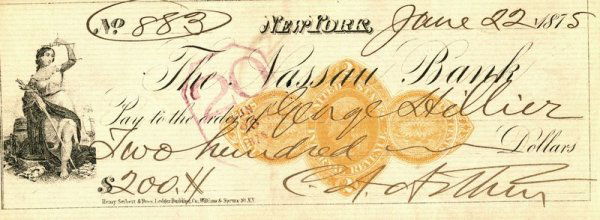 No. 883 NEW YORK, June 22 1875
The Nassau Bank
20
Pay to the order of George Hillier
Two hundred Dollars
$200.
Henry Seibert & Bros. Ledger Building, Co. William & Spruce St. N.Y.